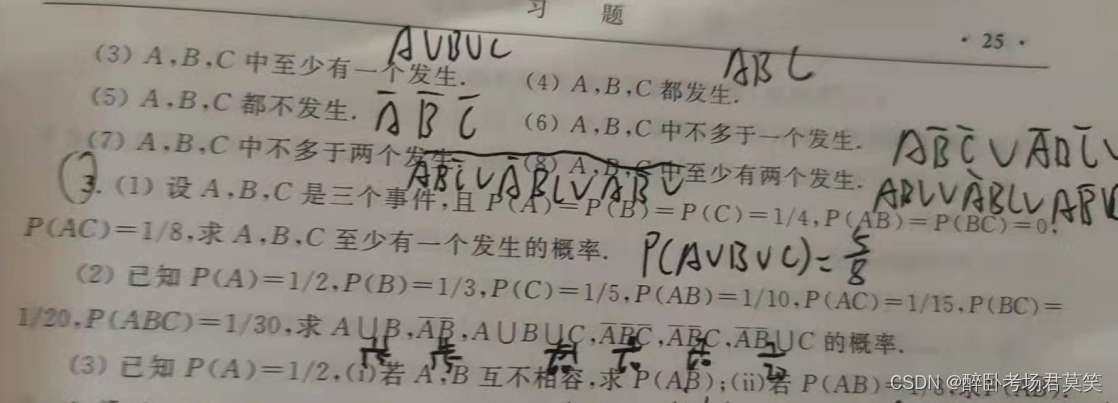 习 题
· 25 ·
A∪B∪C
ABC
(3) A,B,C 中至少有一个发生. (4) A,B,C 都发生.
(5) A,B,C 都不发生. A̅ B̅ C̅ (6) A,B,C 中不多于一个发生.
(7) A,B,C 中不多于两个发生. (8) A,B,C 中至少有两个发生.
3. (1) 设 A,B,C 是三个事件,且 P(A)=P(B)=P(C)=1/4,P(AB)=P(BC)=0,
P(AC)=1/8,求 A,B,C 至少有一个发生的概率. P(A∪B∪C)=5/8
(2) 已知 P(A)=1/2,P(B)=1/3,P(C)=1/5,P(AB)=1/10,P(AC)=1/15,P(BC)=
1/20,P(ABC)=1/30,求 A∪B,A̅B̅,A∪B∪C,A̅B̅C̅,A̅B̅C,A̅B̅∪C 的概率.
(3) 已知 P(A)=1/2,(i)若 A,B 互不相容,求 P(AB̅);(ii)若 P(AB)
CSDN @醉卧考场君莫笑